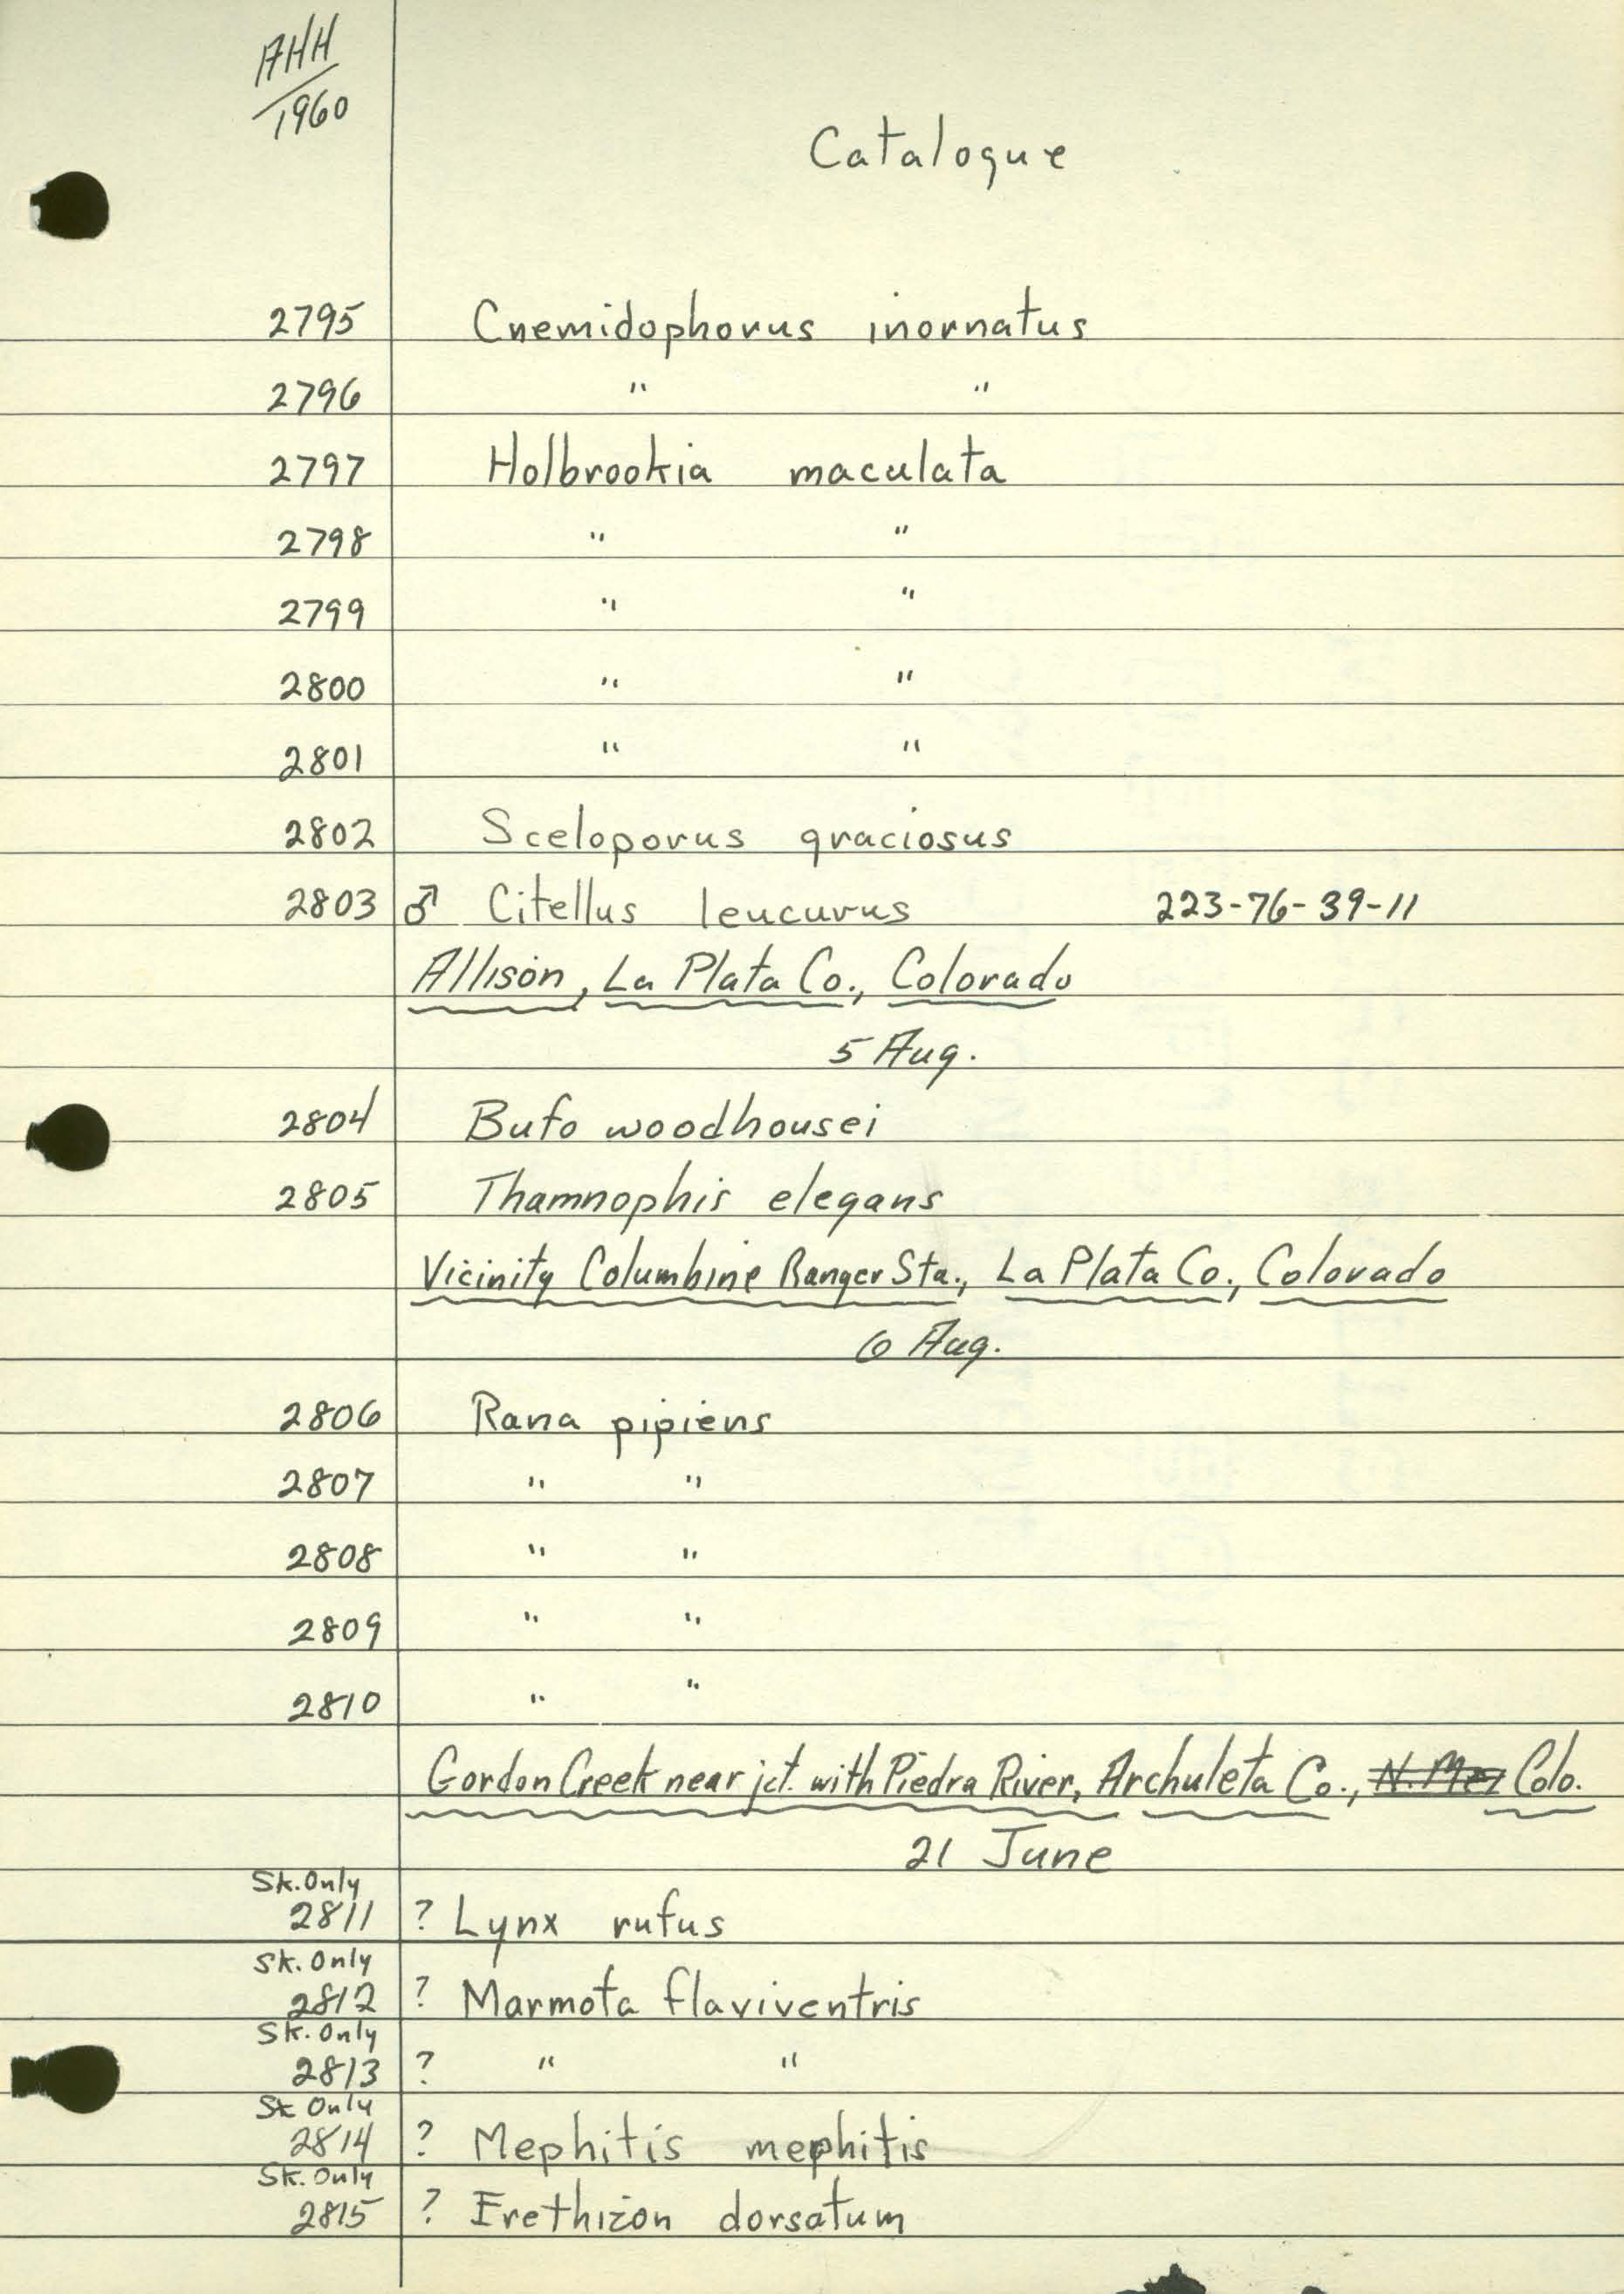 AHH
1960
Catalogue
2795 Cnemidophorus inornatus
2796 " "
2797 Holbrookia maculata
2798 " "
2799 " "
2800 " "
2801 " "
2802 Sceloporus graciosus
2803 ♂ Citellus leucurus 223-76-39-11
Allison, La Plata Co., Colorado
5 Aug.
2804 Bufo woodhousei
2805 Thamnophis elegans
Vicinity Columbine Ranger Sta., La Plata Co., Colorado
6 Aug.
2806 Rana pipiens
2807 " "
2808 " "
2809 " "
2810 " "
Gordon Creek near jct. with Piedra River, Archuleta Co., N. Mex Colo.
21 June
Sk. Only
2811 ? Lynx rufus
Sk. Only
2812 ? Marmota flaviventris
Sk. Only
2813 ? " "
Sk Only
2814 ? Mephitis mephitis
Sk. Only
2815 ? Erethizon dorsatum